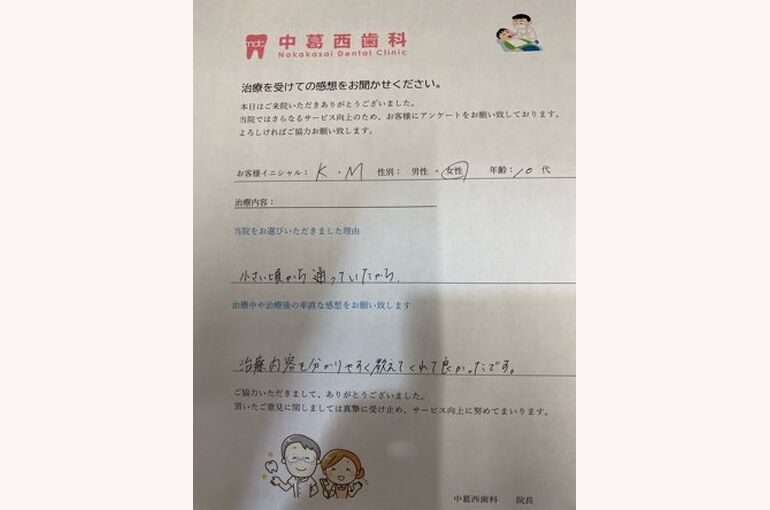 ndc 中葛西歯科
Nakakasai Dental Clinic
治療を受けての感想をお聞かせください。
本日はご来院いただきありがとうございました。
当院ではさらなるサービス向上のため、お客様にアンケートをお願い致しております。
よろしければご協力お願い致します。
お客様イニシャル： K ・ M 性別： 男性 ・ 女性 年齢：10 代
治療内容：
当院をお選びいただきました理由
小さい頃から通っていたから。
治療中や治療後の率直な感想をお願い致します
治療内容も分かりやすく教えてくれて良かったです。
ご協力いただきまして、ありがとうございました。
頂いたご意見に関しましては真摯に受け止め、サービス向上に努めてまいります。
中葛西歯科 院長